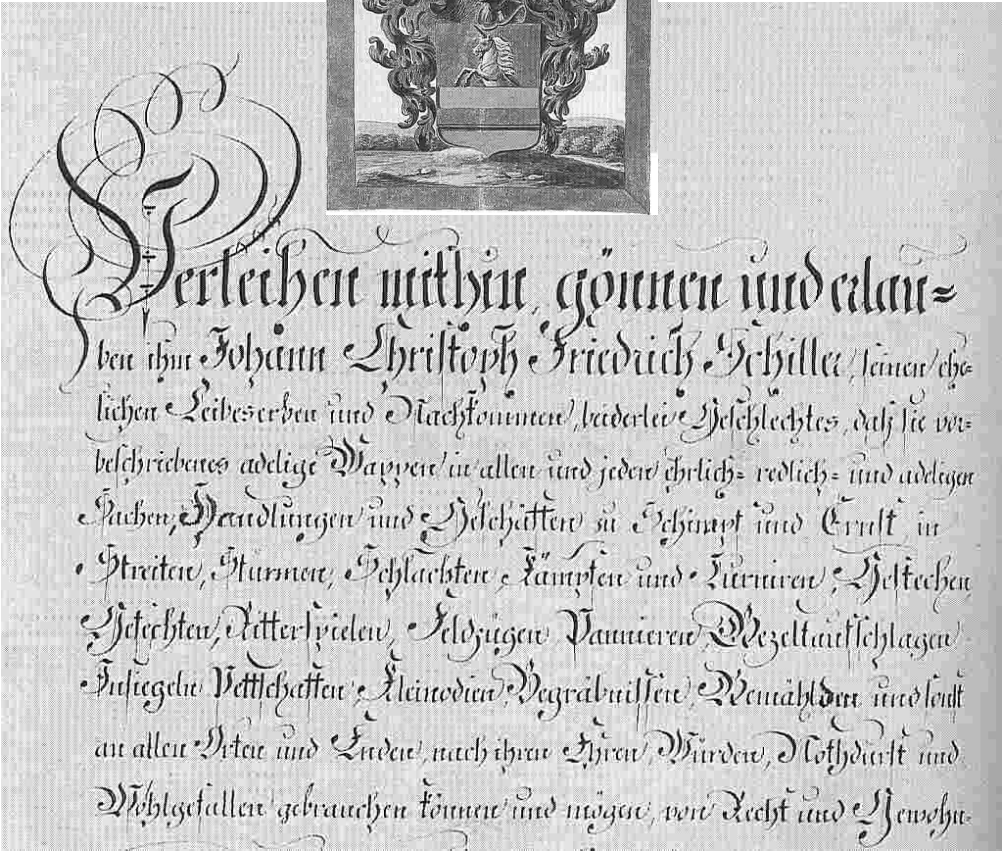 Verleihen mithin, gönnen und erlau=
ben ihm Johann Christoph Friedrich Schiller, seinen ehe=
lichen Leibeserben und Nachkommen, beiderlei Geschlechtes, daß sie vor=
beschriebenes adelige Wappen in allen und jeden ehrlich= redlich= und adeligen
Sachen, Handlungen und Geschäften zu Schimpf und Ernst, in
Streiten, Stürmen, Schlachten, Kämpfen und Turniren, Gestechen,
Gefechten, Ritterspielen, Feldzügen, Pannieren, Gezeltaufschlagen,
Insiegeln, Pettschaften, Kleinodien, Begräbnissen, Gemählden und sonst
an allen Orten und Enden, nach ihren Ehren, Würden, Nothdurft und
Wohlgefallen gebrauchen können und mögen, von Recht und Gewohn=